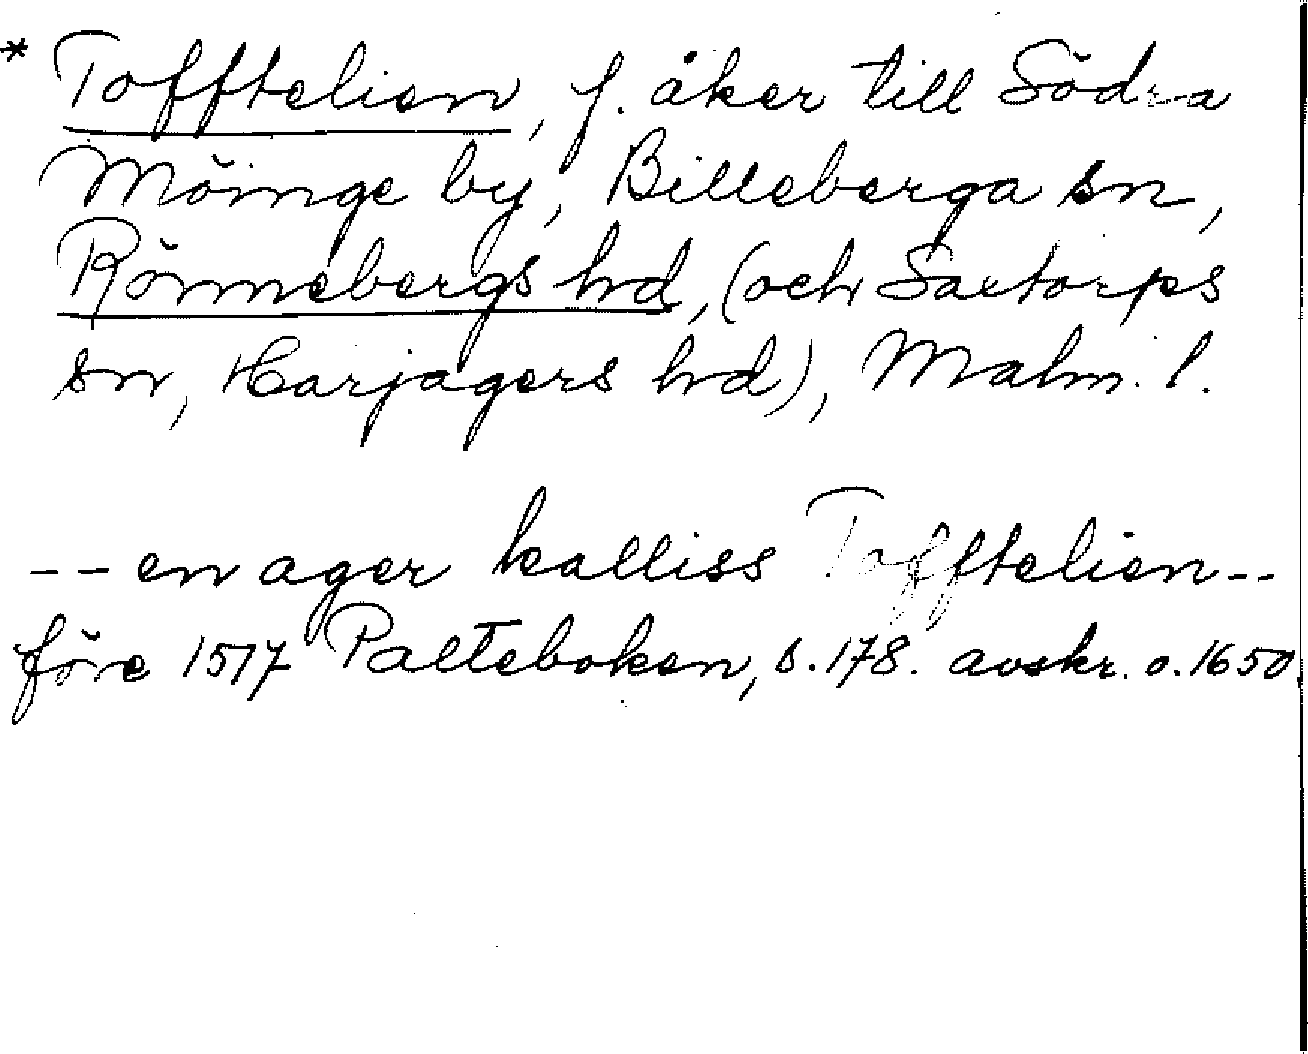 * Tofftelien, f. åker till Södra
Möinge by, Billeberga sn,
Rönnebergs hd, (och Saxtorps
sn, Harjagers hd), Malm. l.
-- en ager kalliss Tofftelien --
före 1517 Palteboken, s. 178. avskr. o. 1650.